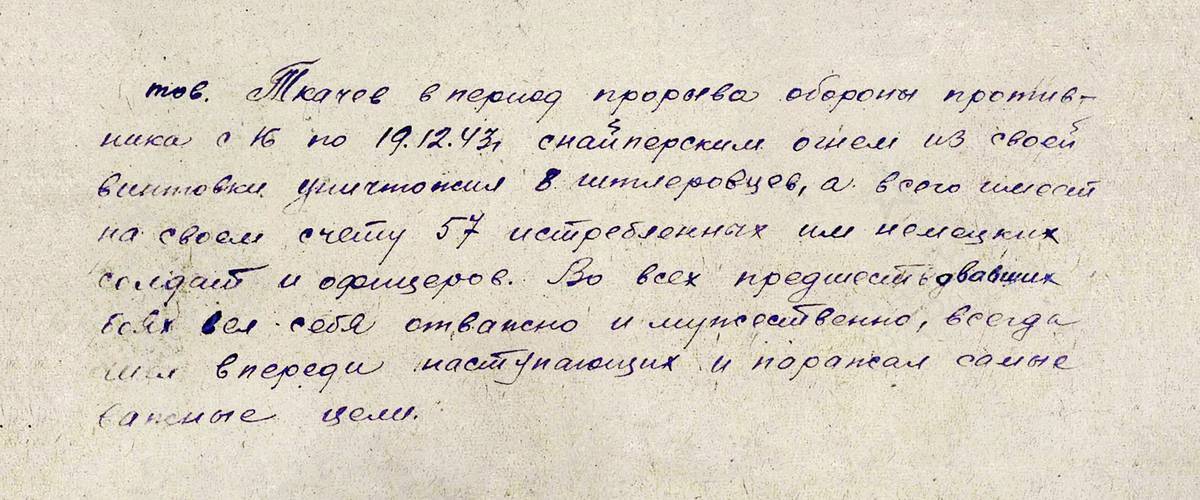 тов. Ткачев в период прорыва обороны против-
ника с 16 по 19.12.43г снайперским огнем из своей
винтовки уничтожил 8 гитлеровцев, а всего имеет
на своем счету 57 истребленных им немецких
солдат и офицеров. Во всех предшествовавших
боях вел себя отважно и мужественно, всегда
шел впереди наступающих и поражал самые
важные цели.